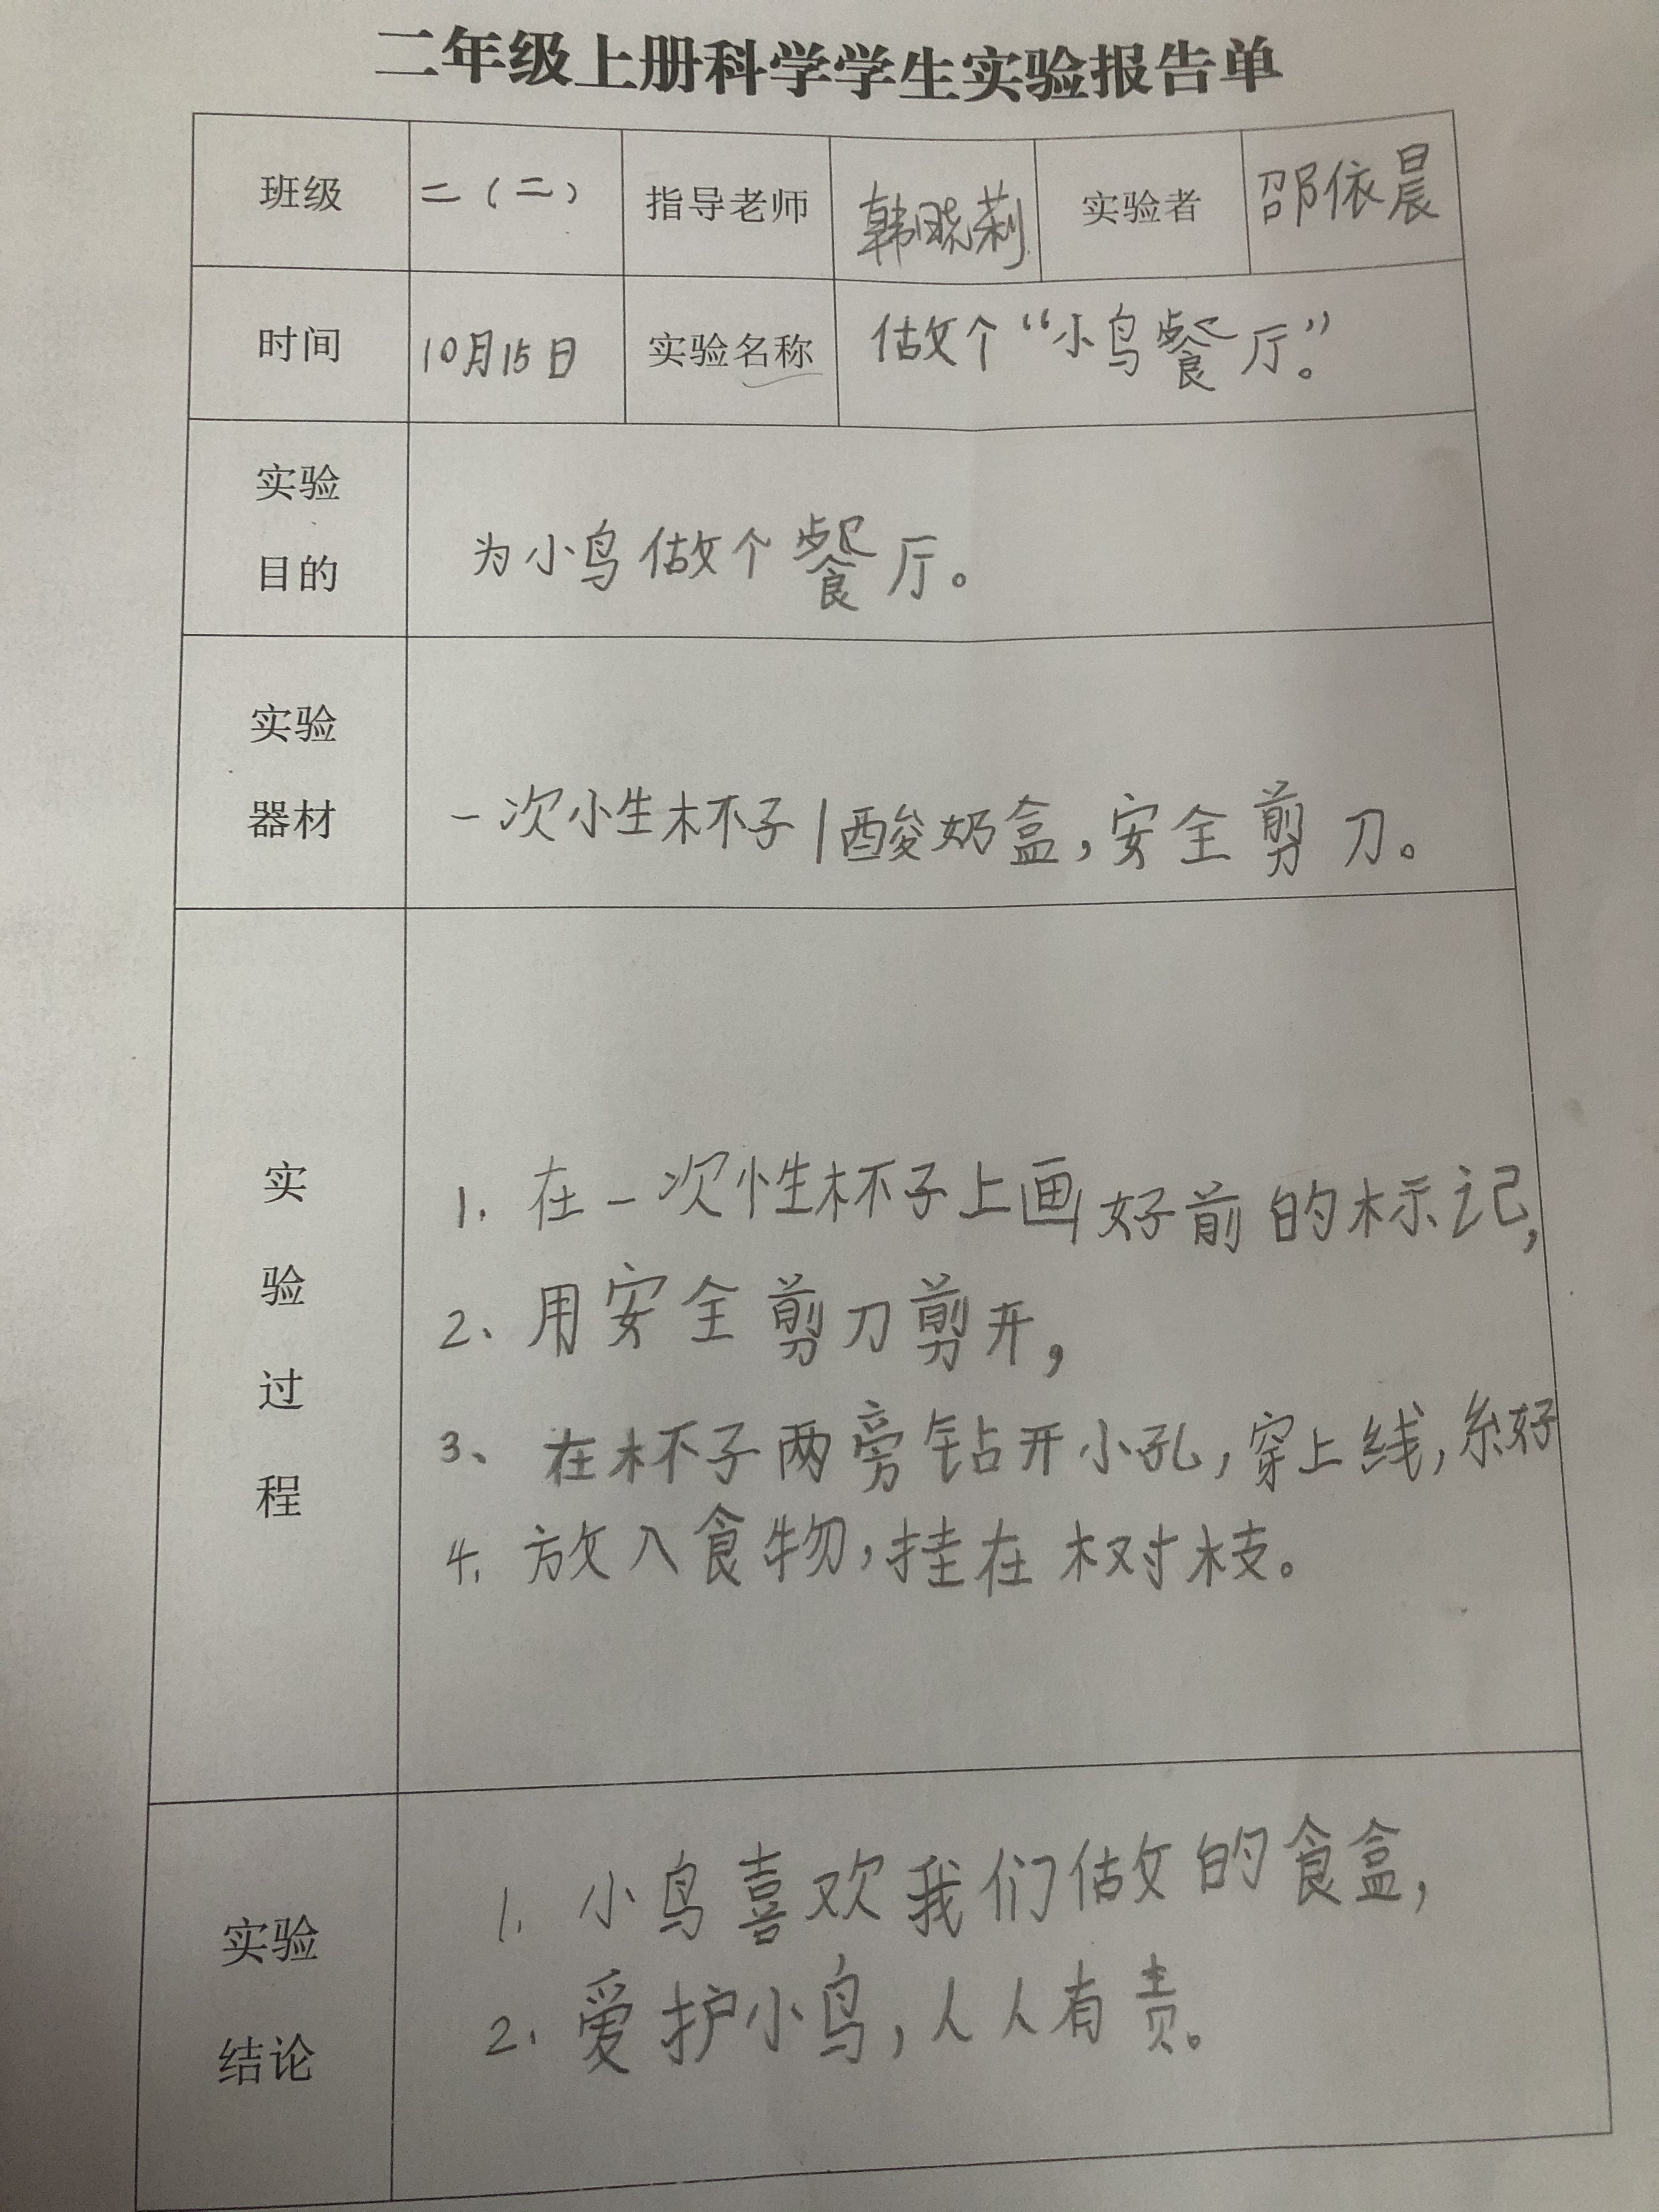 二年级上册科学学生实验报告单
班级 二（二） 指导老师 韩晓莉 实验者 邵依晨
时间 10月15日 实验名称 做个“小鸟餐厅。”
实验
目的
为小鸟做个餐厅。
实验
器材
一次小生杯子/酸奶盒，安全剪刀。
实
验
过
程
1. 在一次性杯子上画好前的标记，
2、用安全剪刀剪开，
3、在杯子两旁钻开小孔，穿上线，系好
4. 放入食物，挂在树枝。
实验
结论
1. 小鸟喜欢我们做的食盒，
2. 爱护小鸟，人人有责。